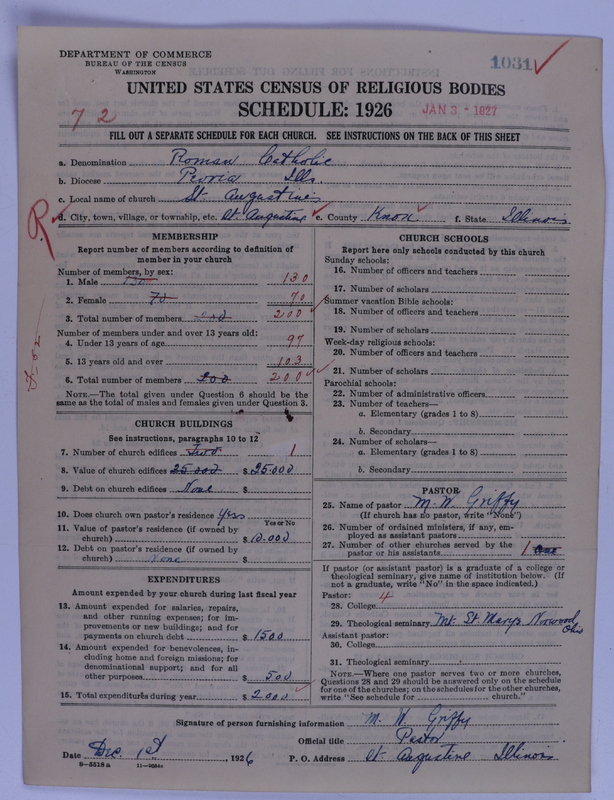 DEPARTMENT OF COMMERCE
BUREAU OF THE CENSUS
WASHINGTON
1031
UNITED STATES CENSUS OF RELIGIOUS BODIES
SCHEDULE: 1926
JAN 3 - 1927
72
FILL OUT A SEPARATE SCHEDULE FOR EACH CHURCH. SEE INSTRUCTIONS ON THE BACK OF THIS SHEET
a. Denomination Roman Catholic
b. Diocese Peoria Ills.
c. Local name of church St. Augustines
d. City, town, village, or township, etc. St Augustine e. County Knox f. State Illinois
R
MEMBERSHIP
Report number of members according to definition of
member in your church
Number of members, by sex:
1. Male 130 130
2. Female 70 70
3. Total number of members 200 200
Number of members under and over 13 years old:
4. Under 13 years of age 97
5. 13 years old and over 103
6. Total number of members 200 200
NOTE.—The total given under Question 6 should be the
same as the total of males and females given under Question 3.
CHURCH BUILDINGS
See instructions, paragraphs 10 to 12
7. Number of church edifices Two 1
8. Value of church edifices 25000 $25000
9. Debt on church edifices None $
10. Does church own pastor's residence yes
Yes or No
11. Value of pastor's residence (if owned by
church) $10.000
12. Debt on pastor's residence (if owned by
church) None $
EXPENDITURES
Amount expended by your church during last fiscal year
13. Amount expended for salaries, repairs,
and other running expenses; for im-
provements or new buildings; and for
payments on church debt $1500
14. Amount expended for benevolences, in-
cluding home and foreign missions; for
denominational support; and for all
other purposes $500
15. Total expenditures during year $2000
CHURCH SCHOOLS
Report here only schools conducted by this church
Sunday schools:
16. Number of officers and teachers
17. Number of scholars
Summer vacation Bible schools:
18. Number of officers and teachers
19. Number of scholars
Week-day religious schools:
20. Number of officers and teachers
21. Number of scholars
Parochial schools:
22. Number of administrative officers
23. Number of teachers—
a. Elementary (grades 1 to 8)
b. Secondary
24. Number of scholars—
a. Elementary (grades 1 to 8)
b. Secondary
PASTOR
25. Name of pastor M. W. Griffy
(If church has no pastor, write "None")
26. Number of ordained ministers, if any, em-
ployed as assistant pastors
27. Number of other churches served by the
pastor or his assistants 1 one
If pastor (or assistant pastor) is a graduate of a college or
theological seminary, give name of institution below. (If
not a graduate, write "No" in the space indicated.)
Pastor: 4
28. College
29. Theological seminary Mt. St. Marys Norwood Ohio
Assistant pastor:
30. College
31. Theological seminary
NOTE.—Where one pastor serves two or more churches,
Questions 28 and 29 should be answered only on the schedule
for one of the churches; on the schedules for the other churches,
write "See schedule for church."
Signature of person furnishing information M. W. Griffy
Official title Pastor
Date Dec. 1st, 1926 P. O. Address St Augustine Illinois
8-5518a